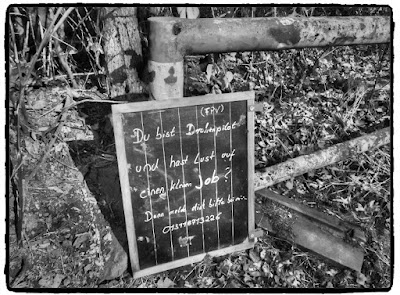 (FPV)
Du bist Drohnenpilot
und hast Lust auf
einen kleinen Job?
Dann melde dich bitte bei mir.